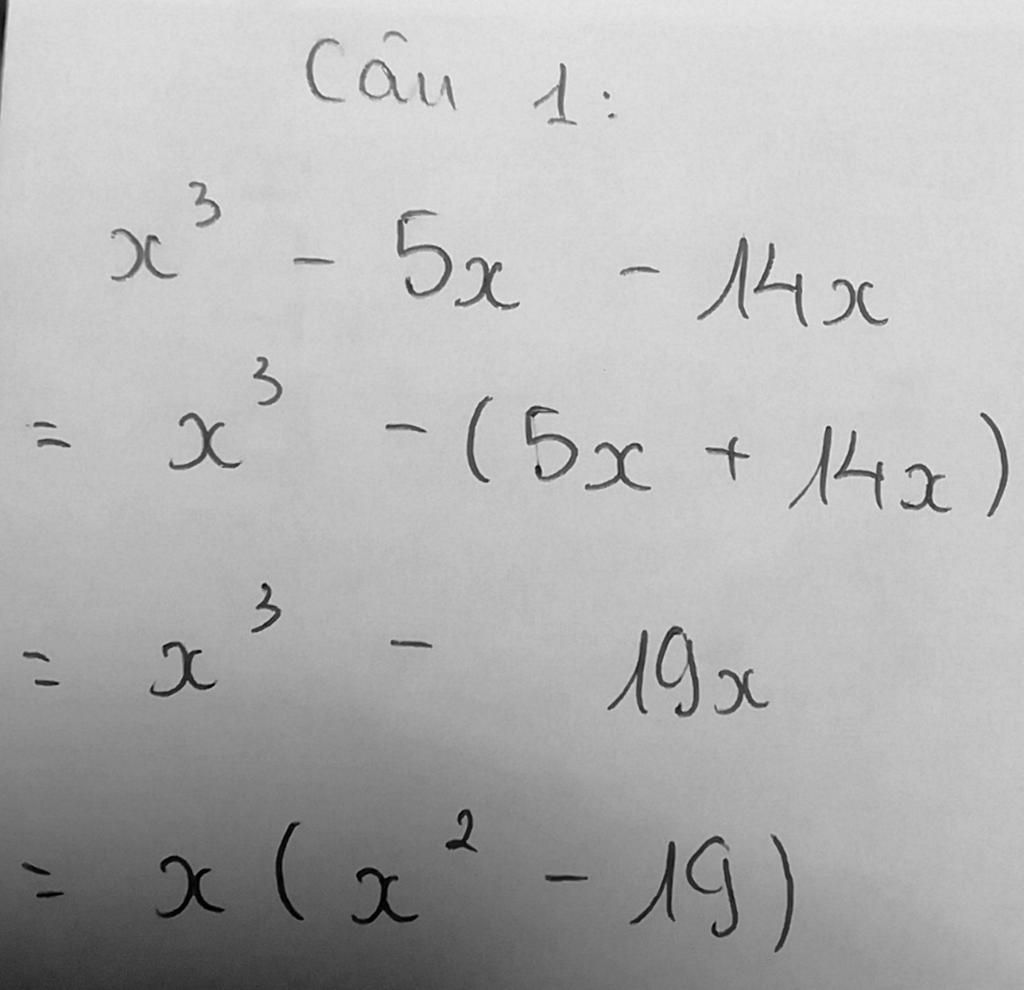 Câu 1:
x³ - 5x - 14x
= x³ - (5x + 14x)
= x³ - 19x
= x(x² - 19)